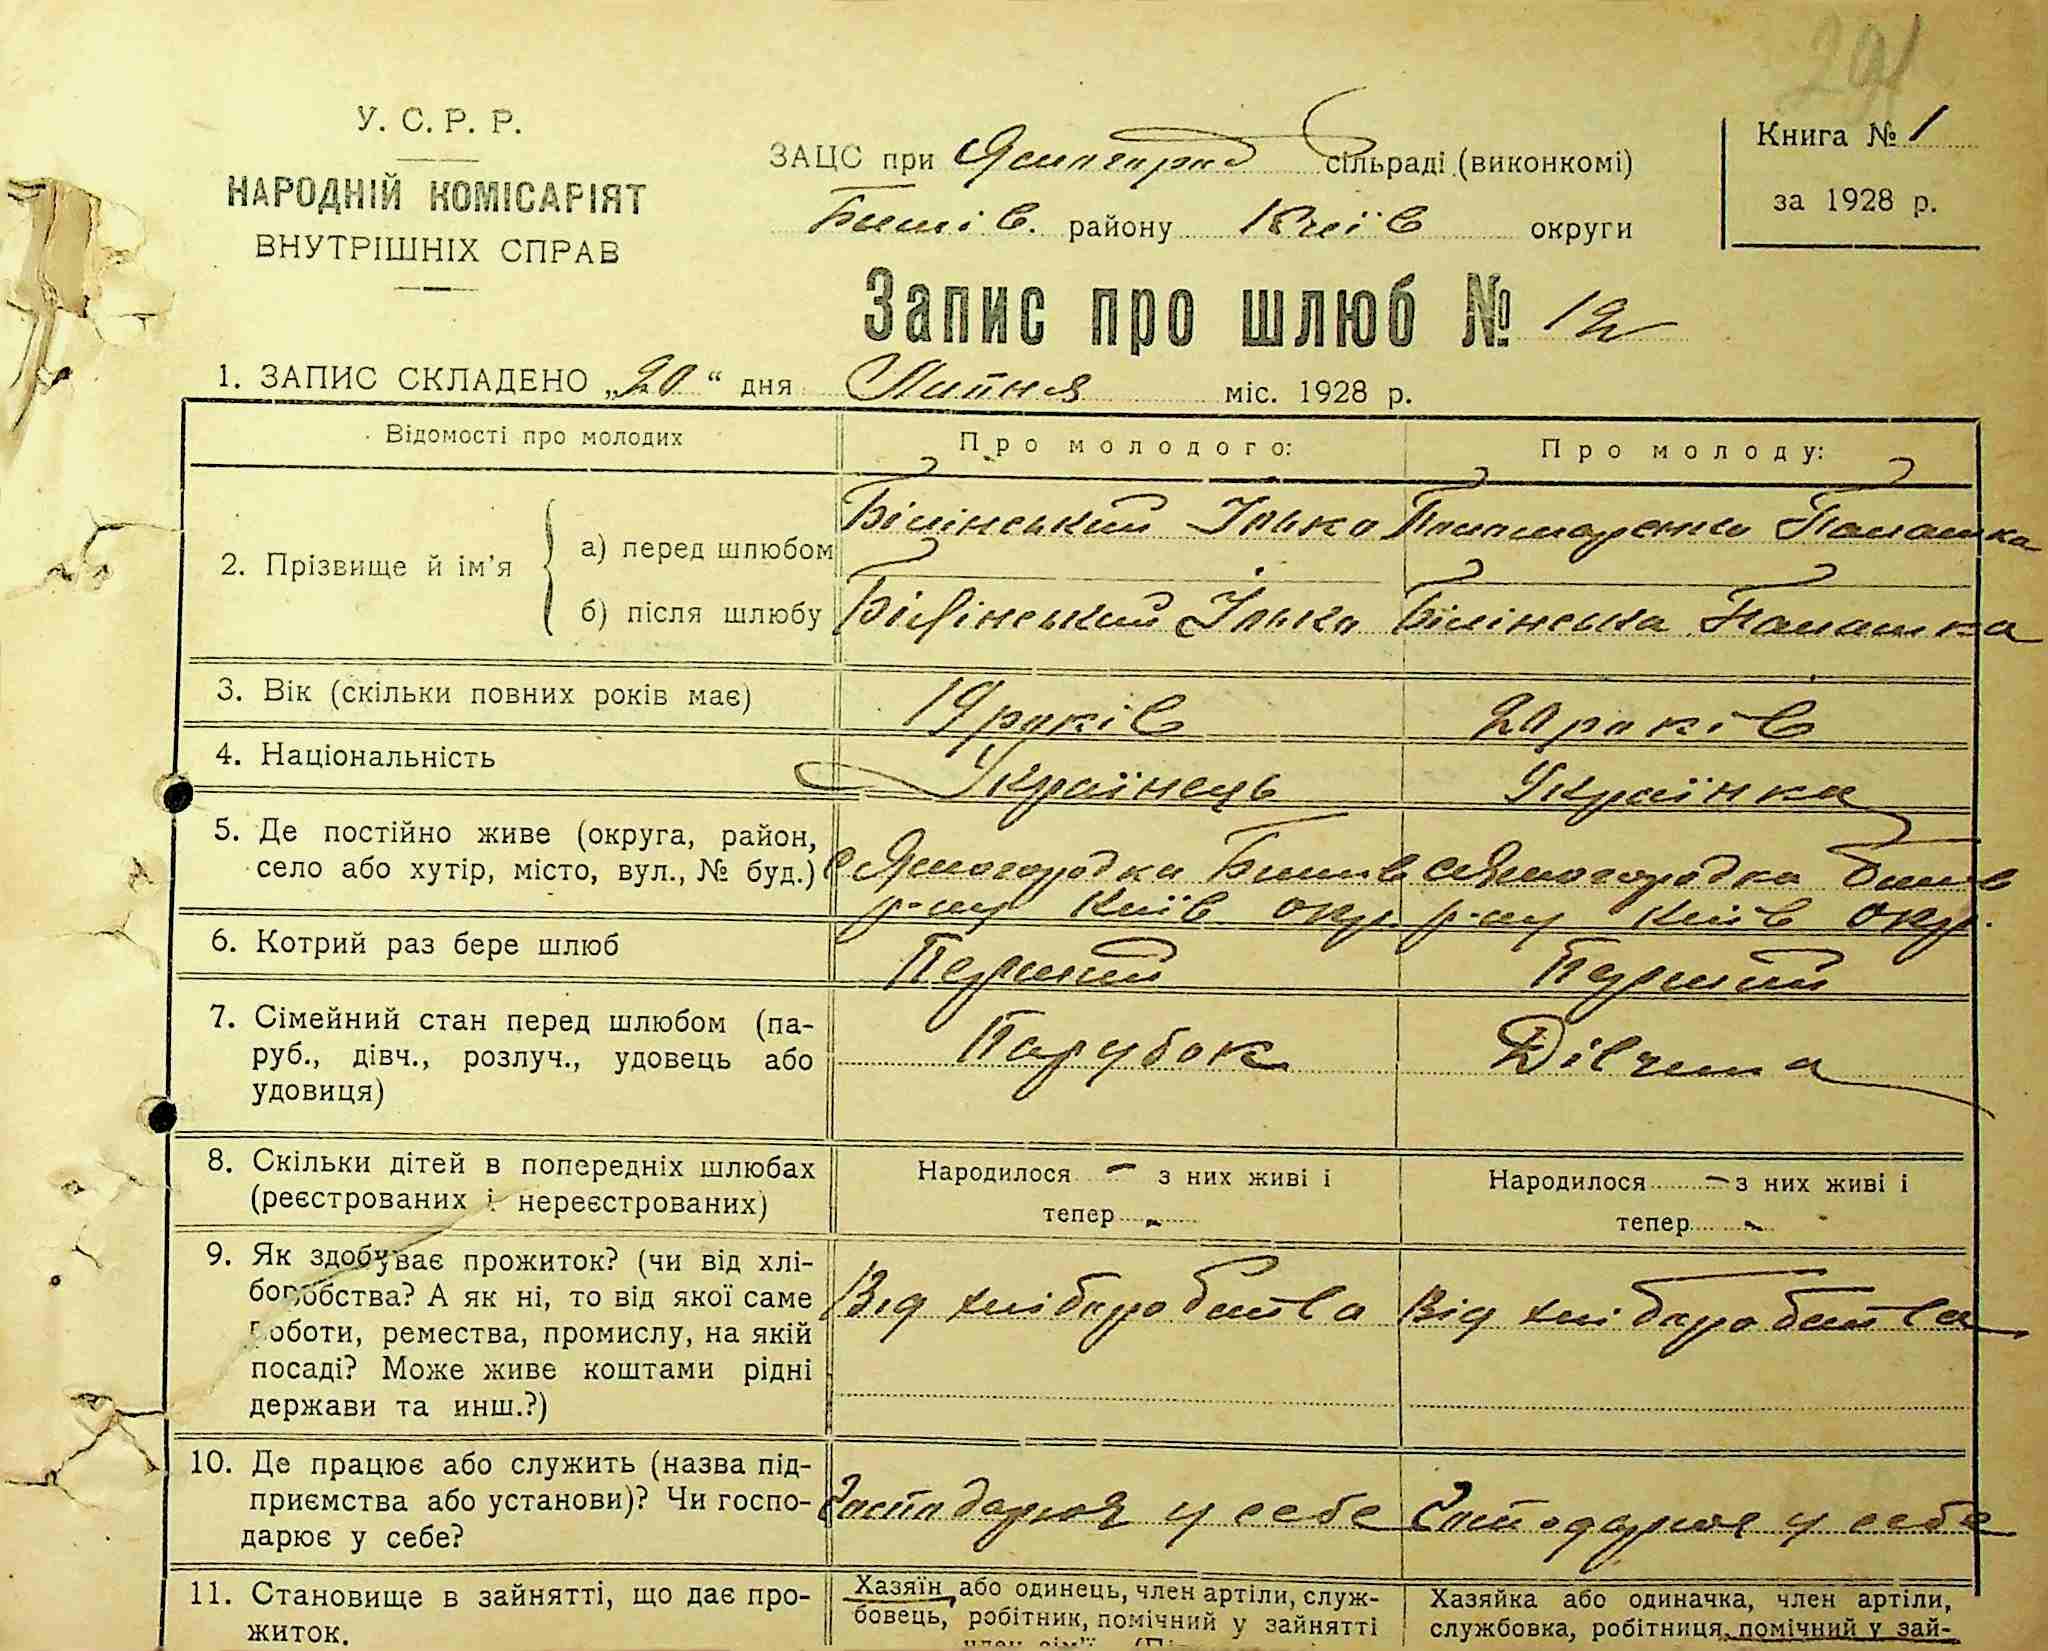 291
У. С. Р. Р.
НАРОДНІЙ КОМІСАРІЯТ
ВНУТРІШНІХ СПРАВ
ЗАЦС при Ясногород сільраді (виконкомі)
Бишів. району Київ округи
Книга № 1
за 1928 р.
Запис про шлюб № 12
1. ЗАПИС СКЛАДЕНО „20“ дня Липня міс. 1928 р.
Відомості про молодих
Про молодого:
Про молоду:
2. Прізвище й ім’я
а) перед шлюбом
Білінський Ілько
Пономаренко Палашка
б) після шлюбу
Білінський Ілько
Білінська Палашка
3. Вік (скільки повних років має)
19 років
20 років
4. Національність
Українець
Українка
5. Де постійно живе (округа, район,
село або хутір, місто, вул., № буд.)
с Ясногородка Бишів
р-ну Київ окр.
с Ясногородка Бишів
р-ну Київ окр.
6. Котрий раз бере шлюб
Перший
Перший
7. Сімейний стан перед шлюбом (па-
руб., дівч., розлуч., удовець або
удовиця)
Парубок
Дівчина
8. Скільки дітей в попередніх шлюбах
(реєстрованих і нереєстрованих)
Народилося – з них живі і
тепер „
Народилося – з них живі і
тепер „
9. Як здобуває прожиток? (чи від хлі-
боробства? А як ні, то від якої саме
роботи, ремества, промислу, на якій
посаді? Може живе коштами рідні
держави та инш.?)
Від хліборобства
Від хліборобства
10. Де працює або служить (назва під-
приємства або установи)? Чи госпо-
дарює у себе?
Господарює у себе
Господарює у себе
11. Становище в зайнятті, що дає про-
житок.
Хазяїн або одинець, член артіли, служ-
бовець, робітник, помічний у зайнятті
Хазяйка або одиначка, член артіли,
службовка, робітниця, помічний у зай-